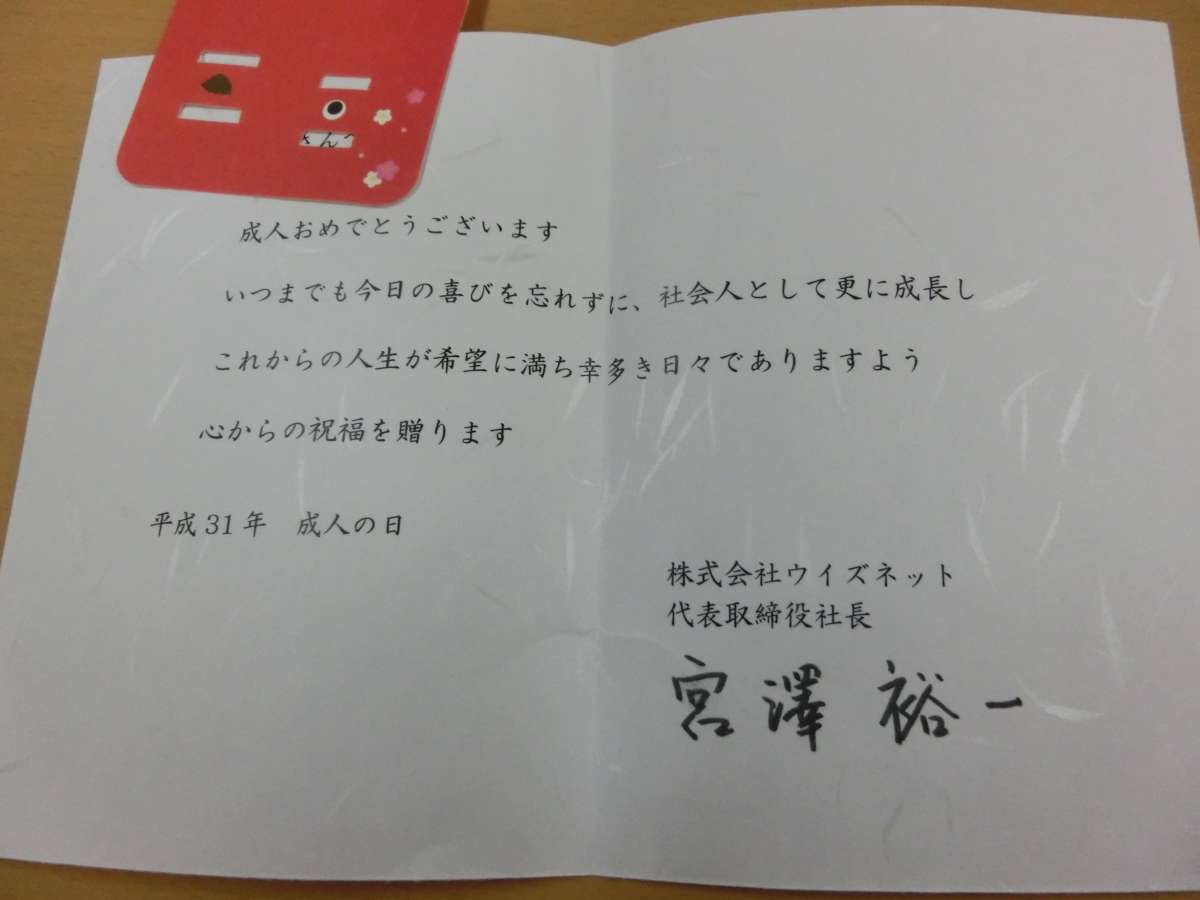 さんへ
成人おめでとうございます
いつまでも今日の喜びを忘れずに、社会人として更に成長し
これからの人生が希望に満ち幸多き日々でありますよう
心からの祝福を贈ります
平成31年 成人の日
株式会社ウイズネット
代表取締役社長
宮澤 裕一